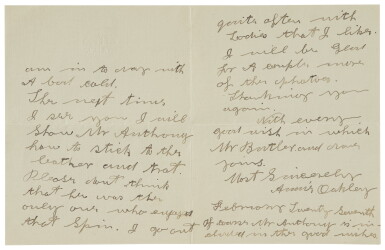 am in to day with
A bad cold.
The next time
I see you I will
Show Mr Anthony
how to stick to the
leather and trot.
Please dont think
that he was the
only one who enjoyed
that Spin. I go out
quite often with
Ladies that I like.
I will be Glad
for A couple more
of the photos.
Thanking you
again.
With every
good wish in which
Mr Butler
yours.
Most Sincerely
Annie Oakley
February Twenty Seventh
Of course Mr Anthony is in-
cluded in the good wishes